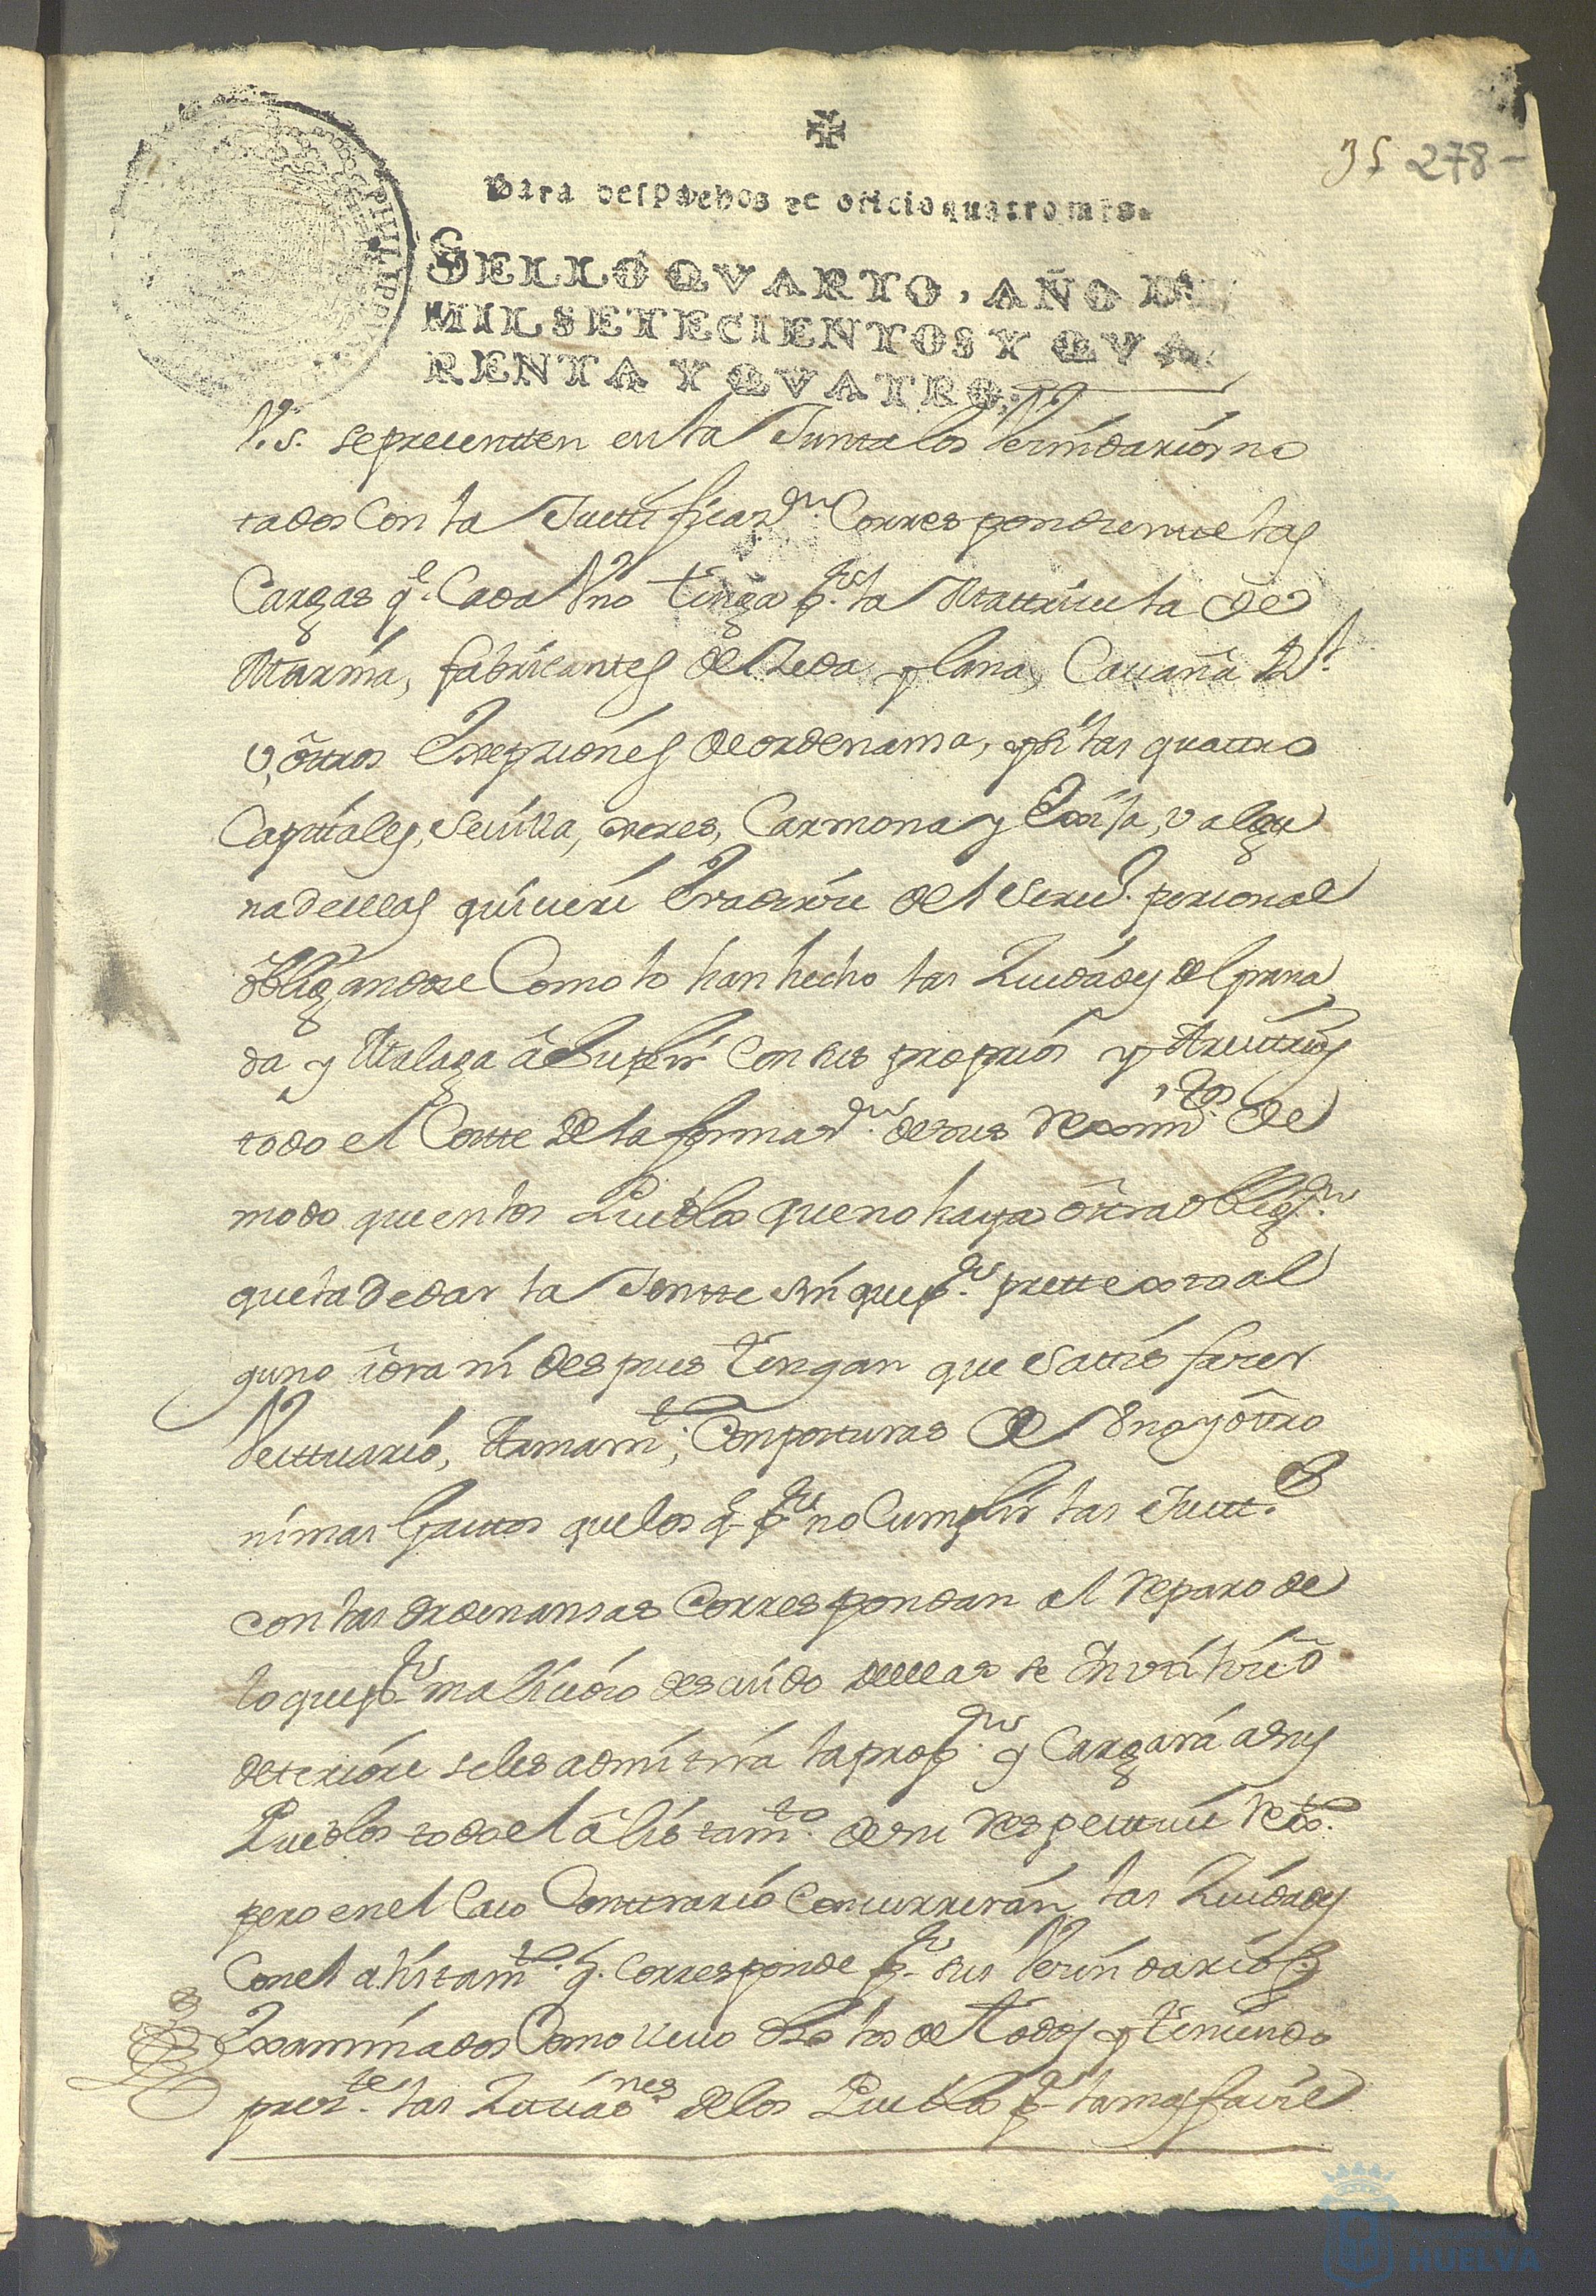 ✠
35 278-
Para despachos de oficio quatro mrs.
SELLO QVARTO, AÑO DE
MIL SETECIENTOS Y QVA
RENTA Y QVATRO.
PHILIPP
V.S. sepresentten en la Junta los Vezindarios no
tados con la Justtificaz.on Correspondiente las
Cargas q.e Cada Uno tenga p.r la Mattricula de
Marina, fabricantes de Zeda y lana, Cavaña R.l
u, òttros Exepziones de ordenansa, y si las quattro
Capittales, Sevilla, xerez, Carmona y Exija, v algu
na dellas quiziere Evadirse del Serv.o personal
òbligandose Como lo han hecho las Ziudades de Grana
da y Malaga à Suplir con sus proprios y Arvittrios
todo el Costte de la formaz.on de sus Reximi.tos de
modo que en los Pueblos que no haya òttra obligaz.on
que la de dar la Jentte sin que p.r prettexto al
guno àora ni despues tengan que sattisfazer
Vesttuario, Armam.to, Composturas de Uno y òttro
ni mas Gasttos que los q.e p.r no Cumplir las Justt.s
con las ordenansas Correspondan al reparo de
lo que p.r malizia o descuido dellas se Inutilize ò
deteriore seles admitira la prop.on y Cargará a sus
Pueblos todo el àlistam.to de su respecttivo Rex.to
pero en el Caso Conttrario Concurrirán las Ziudades
Con el alistam.to q.e corresponde p.r sus Vezindarios
Examinados Como llevo d.ho los de todos y teniendo
pres.te las Zittuaz.nes de los Pueblos p.a la mas fazil
HUELVA